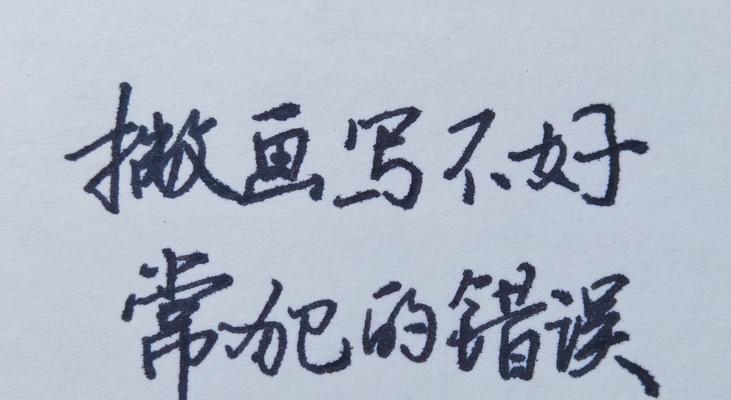 撇画写不好
常犯的错误